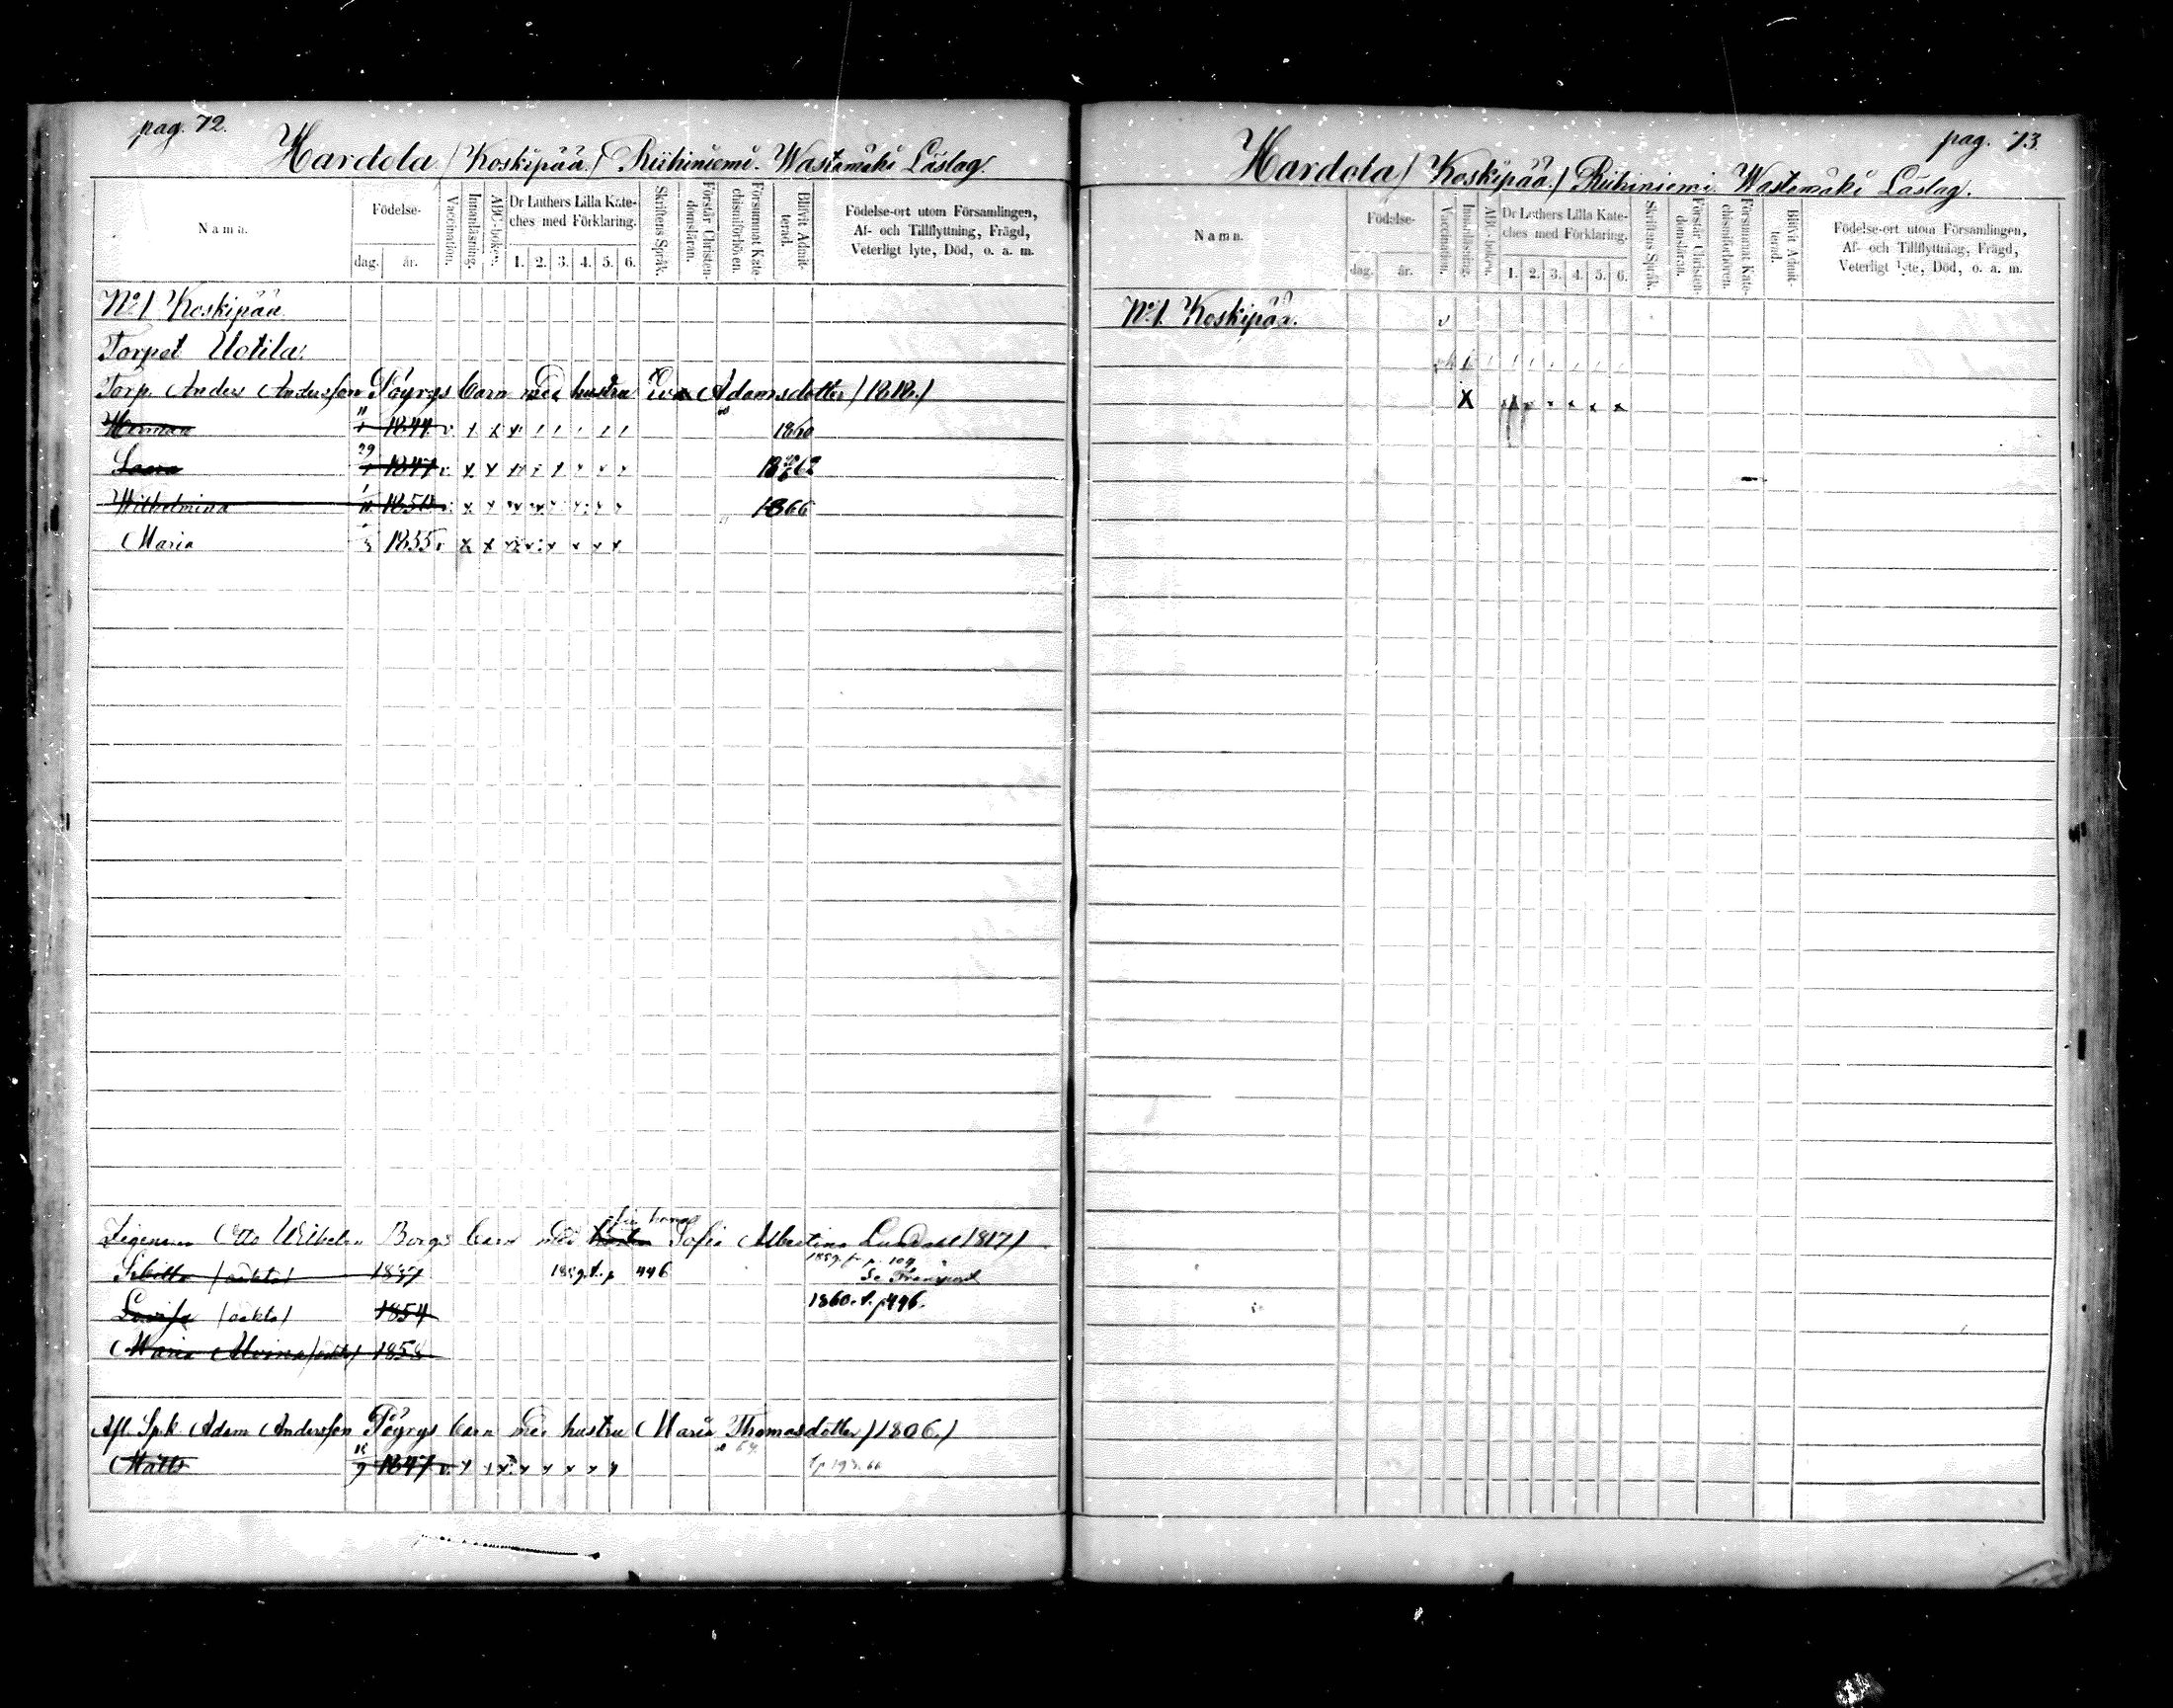 pag. 72.
Hardola / Koskipää / Riihiniemi. Wastamäki Läslag.
Namn.
Födelse-
dag.
år.
Vaccination.
Innanläsning.
ABC-boken.
Dr Luthers Lilla Kate-
ches med Förklaring.
1. 2. 3. 4. 5. 6.
Skriftens Språk.
Förstår Christen-
domsläran.
Försummat Kate-
chismiförhören.
Blifvit Admit-
terad.
Födelse-ort utom Församlingen,
Af- och Tillflyttning, Frägd,
Veterligt lyte, Död, o. a. m.
No 1 Koskipää.
Torpet Uotila.
Torp. Anders Andersson Pöyrys barn med hustru Eva Adamsdotter /1818./
Herman 11 1844 v 1860
29 1847 v 1862
Wilhelmina 1850 v 1866
Maria 1855 v
Otto Wilhelm Borgs barn med Sofia Albertina Lundall /1817/
1859 fr. p. 109
/oäkta/ 1859 t. p 446
Se Transport
Lovisa /oäkta/ 1854 1860. t. p 446.
Maria Alvina /oäkta/ 1858
Afl. Spk Adam Andersson Pöyrys barn med hustru Maria Thomasdotter /1806./
Matts 9 1847 v.
pag. 73.
Hardola / Koskipää / Riihiniemi Wastamäki Läslag.
Namn.
Födelse-
dag.
år.
Vaccination.
Innanläsning.
ABC-boken.
Dr Luthers Lilla Kate-
ches med Förklaring.
1. 2. 3. 4. 5. 6.
Skriftens Språk.
Förstår Christen-
domsläran.
Försummat Kate-
chismiförhören.
Blifvit Admit-
terad.
Födelse-ort utom Församlingen,
Af- och Tillflyttning, Frägd,
Veterligt lyte, Död, o. a. m.
No 1. Koskipää.